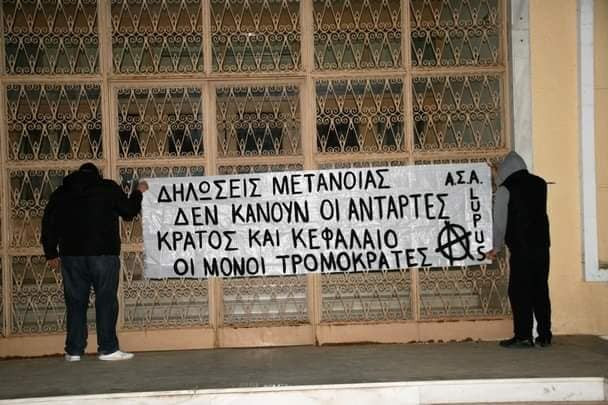 ΔΗΛΩΣΕΙΣ ΜΕΤΑΝΟΙΑΣ
ΔΕΝ ΚΑΝΟΥΝ ΟΙ ΑΝΤΑΡΤΕΣ
ΚΡΑΤΟΣ ΚΑΙ ΚΕΦΑΛΑΙΟ
ΟΙ ΜΟΝΟΙ ΤΡΟΜΟΚΡΑΤΕΣ
Α.Σ.Α.
LUPUS